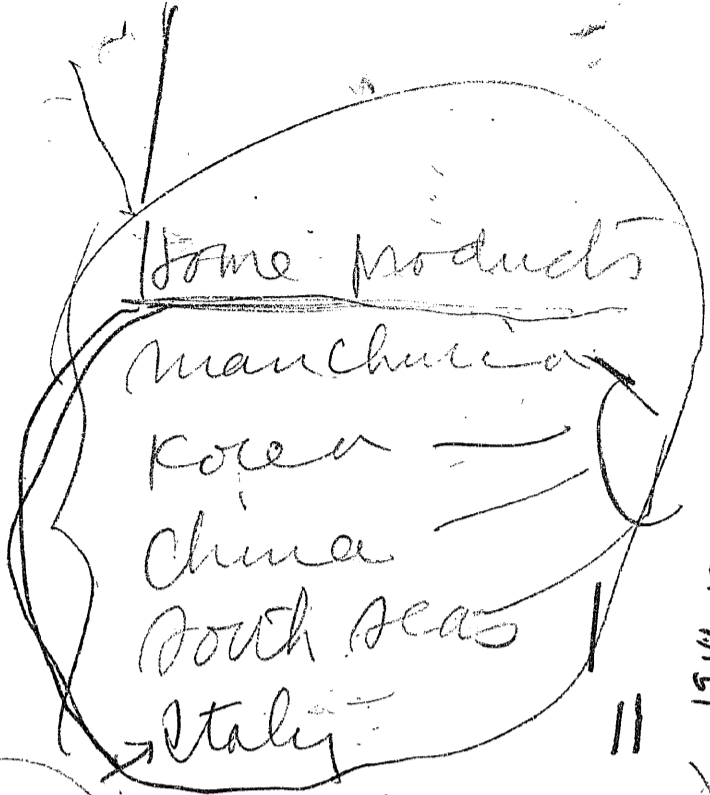 Some products
Manchuria
Korea
China
South Seas
Italy